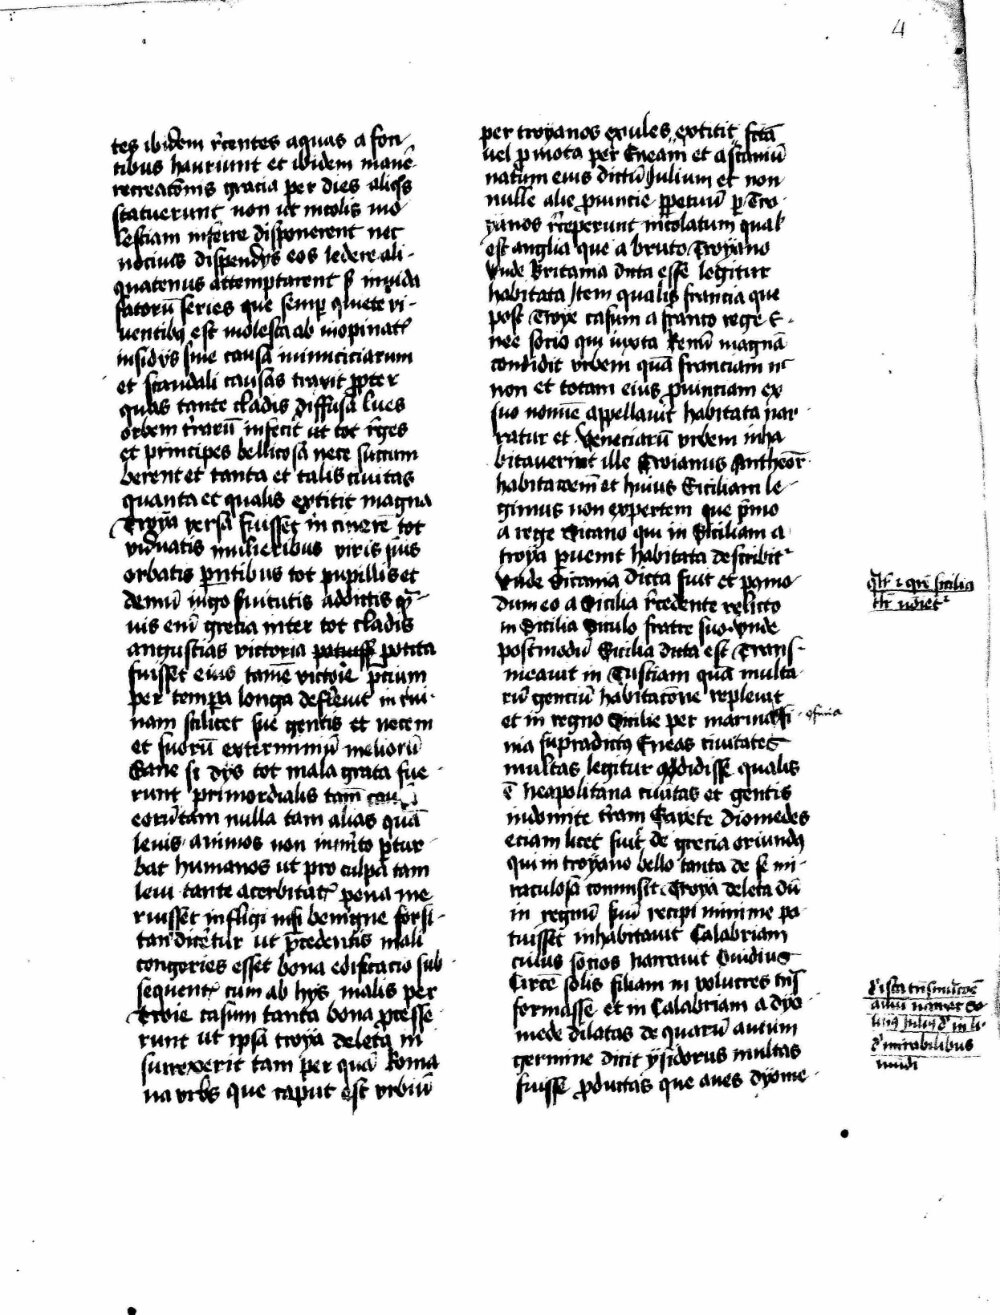 4
tes ibidem r̄centes aquas a fon-
tibus hauriunt et ibidem more
recreac̄onis gracia per dies aliq̄s
statuerunt non ut incolis mo-
lestiam inferre disponerent nec
nocivis dispendijs eos ledere ali-
quatenus attemptarent s̄ invida
fatorū series que semp̄ quiete vi-
ventibꝫ est molesta ab inopinat᷒
insidijs sine causa inimiciciarum
et scandali causas traxit ꝓpter
quas tante cladis diffusa lues
orbem t̄rarū infecit ut tot r̄ges
et principes bellicosa nece succum
berent et tanta et talis civitas
quanta et qualis extitit magna
Troya versa fuisset in cinerē tot
viduatis mulieribus viris suis
orbatis par̄ntibus tot pupillis et
demū iugo s̄vitutis addictis q̄-
vis enī grecia inter tot cladis
angustias victoria potuiss̄ potita
fuisset eius tamē victorie p̄cium
per tempa longa defleuit in rui-
nam scilicet sue gentis et necem
et suorū exterminiū meliorū
Sane si dijs tot mala grata fue-
runt primordialis tam̄ cau
eorū tam nulla tam alias quā
levis animos non inm̄ito ꝑtur
bat humanos ut pro culpa tam
levi tante acerbitat᷒ pena me
ruisset infligi nisi benigne forsi-
tan dic̄etur ut p̄cedentis mali
congeries esset bona edificacio sub
sequent᷒ cum ab hijs malis per
Troie casum tanta bona ꝓcesse
runt ut ipsa troya deleta in
surrexerit tam per quā Roma
na urbs que caput est urbiū
per troyanos exules extitit fc̄ā
vel ꝓmota per Eneam et ascaniū
natum eius dictū Julium et non
nulle alie ꝓvincie ꝑpetuū ꝑ Tro-
yanos r̄ceperunt incolatum qual᷒
est anglia que a bruto Troyano
unde Britania dicta esse legitur
habitata Item qualis francia que
post Troye casum a franco rege E-
nee socio qui iuxta Renū magnā
condidit urbem quā franciam nec
non et totam eius ꝓvinciam ex
suo nomine appellavit habitata nar-
ratur et Veneciarū urbem inha
bitaverint ille Troianus Anthēor᷒
habitac̄oem̄ et huius Siciliam le-
gimus non expertem que p̄mo
a rege Sicano qui in Siciliam a
troya ꝑvenit habitata describit᷒
Unde Sicania dicta fuit et ꝑ amo-
dum eo a Sicilia r̄cedente relicto
in Sicilia Siculo fratre suo unde
postmodū Sicilia dicta est Trans-
meavit in Tusciam quā multa
rū genciū habitac̄one replevit
et in regno Sicilie per marina
nia supradictꝰ Eneas civitates
multas legitur ꝯdidisse qualis
ē neapolitana civitas et gentis
indomite t̄ram Gayete Diomedes
eciam licet fuit de grecia oriundꝰ
qui in troyano bello tanta de se mi-
raculosa commisit Troya deleta dū
in regnū suū recipi minime po
tuisset inhabitavit Calabriam
cuius socios narravit Ovidius
Circē solis filiam in volucres tn̄s
formasse et in Calabriam a dyo
mede dilatas de quarū avium
germine dicit ysidorus multas
fuisse ꝓductas que aves dyome-
q̄lr᷒ ⁊ quar̄ sicilia
sic vocet᷒
d᷒ ista tn̄smutac̄e
aviū narrat So
linꝰ Juliꝰ d᷒ in li-
d᷒ mirabilibus
mundi